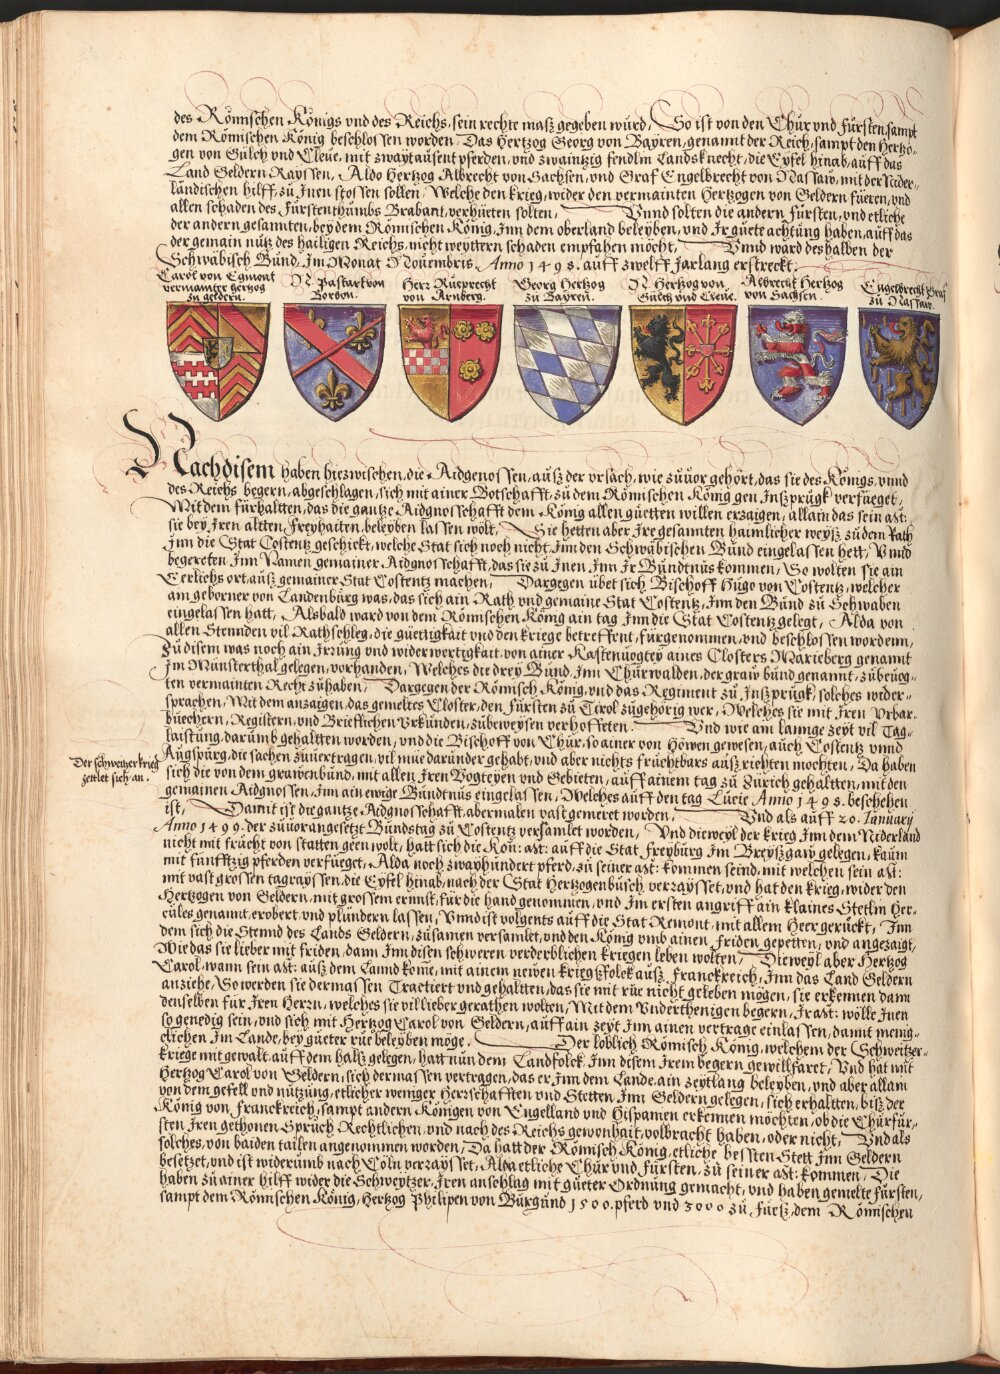 des Römischen Königs vnd des Reichs, sein rechte maß gegeben würd, So ist von den Chür vnd fürsten sampt
dem Römischen König beschlossen worden, Das Hertzog Georg von Bayren, genannt der Reich, sampt den Hertzo-
gen von Gülch vnd Cleue, mit zwaytausent pferden, vnd zwaintzig fendlin Landsknecht, die Eyfel hinab, auff das
Land Geldern Rayssen, Aldo Hertzog Albrecht von Sachsen, vnd Graf Engelbrecht von Nassaw, mit der Nider-
ländischen hilff, zu Inen stossen sollen, Welche den krieg, wider den vermainten Hertzogen von Geldern füeren, vnd
allen schaden des Fürstenthümbs Brabant, verhüeten solten, Vnnd solten die andern fürsten, vnd etliche
der andern gesannten, bey dem Römischen König, Inn dem oberland beleyben, vnd Ir güete achtüng haben, auff das
der gemain nütz des hailigen Reichs, nicht weyttern schaden empfahen möcht, Vnnd ward deshalben der
Schwäbisch Bünd, Im Monat Nouembris, Anno 1498. auff zwelff Jarlang erstreckt.
Carol von Egmont
vermainter hertzog
zu geldern.
N. Pastart von
Borbon.
Herr Rüeprecht
von Arnberg.
Georg Hertzog
zu Bayren.
N. Hertzog von
Gülch vnd Cleue.
Albrecht Hertzog
von Sachsen.
Engelbrecht Graf
zu Nassaw.
Nachdisem haben hiezwischen, die Aidgenossen, auß der vrsach, wie züuor gehört, das sie des Königs, vnnd
des Reichs begern, abgeschlagen, sich mit ainer Botschafft, zu dem Römischen König gen Inßprügk verfueget,
Mit dem fürhaltten, das die gantze Aidgnosschafft dem König allen güetten willen erzaigen, allain das sein Mt:
sie bey Iren altten, Freyhaiten, beleyben lassen wölt, Sie hetten aber Ire gesannten haimlicher weyß zu dem Rath
Inn die Stat Costentz geschickt, welche Stat sich noch nicht Inn den Schwäbischen Bünd eingelassen hett, Vnnd
begereten Inn Namen gemainer Aidgnosschafft, das sie zu Inen Inn Ir Bündtnüs kommen, So wolten sie ain
Eerlichs ort, auß gemainer Stat Costentz machen, Dargegen übet sich Bischoff Hügo von Costentz, welcher
am geborner von Landenbürg was, das sich ain Rath vnd gemaine Stat Costentz, Inn den Bünd zü Schwaben
eingelassen hatt, Alsbald ward von dem Römischen König ain tag Inn die Stat Costentz gelegt, Alda von
allen Stennden vil Rathschleg, die güettigkait vnd den kriege betreffent, fürgenommen, vnd beschlossen wordenn,
Zu disem was noch ain Irrüng vnd widerwertigkait, von ainer Kastenuogtey aines Closters Marieberg genannt
Im Münsterthal gelegen, vorhanden, Welches die drey Bünd, Inn Chürwalden, der graw bünd genannt, zübeüeg-
ten vermainten Recht zuhaben, Dargegen der Römisch König, vnd das Regiment zu Inßprügk, solches wider-
sprachen, Mit dem anzaigen, das gemeltes Closter, den fürsten zu Tirol zügehörig wer, Welches sie mit Iren Vrbar-
büechern, Registern, vnd Brieflichen Vrkünden, zübeweysen verhoffeten. Vnd wie am lannge zeyt vil Tag-
laistüng, darümb gehaltten worden, vnd die Bischoff von Chür, so ainer von Höwen gewesen, aüch Costentz vnnd
Aügspürg, die sachen züuertragen, vil müe daründer gehabt, vnd aber nichts früchtbars aüßrichten mochten, Da haben
sich die von dem grawenbünd, mit allen Iren Vogteyen vnd Gebieten, auff ainem tag zü Zürich gehaltten, mit den
gemainen Aidgnossen, Inn ain ewige Bündtnüs eingelassen, Welches auff den tag Lucie Anno 1498. beschehen
ist, Damit ist die gantze Aidgnosschafft, abermalen vast gemeret worden, Vnd als aüff 20. January
Anno 1499. der züuorangesetzt Bündstag zü Costentz versamlet worden, Vnd dieweyl der krieg Inn dem Niderland
nicht mit frücht von statten geen wolt, hatt sich die Kön: Mt: auff die Stat freybürg Im Breyßgaw gelegen, kaüm
mit fünfftzig pferden verfüeget, Alda noch zwayhündert pferd, zü seiner Mt: kommen seind, mit welchen sein Mt:
mit vast grossen tagrayssen, die Eyfel hinab, nach der Stat Hertzogenbüsch verraysset, vnd hat den krieg, wider den
Hertzogen von Geldern, mit grossem ernnst, für die hand genommen, vnd Im ersten angriff ain klaines Stetlin Her-
cüles genannt, erobert, vnd plündern lassen, Vnnd ist volgents aüff die Stat Remont, mit allem Heer gerückt, Inn
dem sich die Stennd des Lands Geldern, züsamen versamlet, vnd den König vmb ainen friden gepetten, vnd angezaigt,
Wie das sie lieber mit friden, dann Inn disen schweren verderblichen kriegen leben wolten, Dieweyl aber Hertzog
Carol, wann sein Mt: aüß dem Lannd kome, mit ainem newen kriegßfolck aüß Franckreich, Inn das Land Geldern
anziehe, So werden sie dermassen Tractiert vnd gehaltten, das sie mit rüe nicht geleben mögen, sie erkennen dann
denselben für Iren Herrn, welches sie vil lieber gerathen wolten, Mit dem Vnderthenigen begern, Ir Mt: wölle Inen
so genedig sein, vnd sich mit Hertzog Carol von Geldern, aüff ain zeyt Inn ainen vertrage einlassen, damit menig-
clichen Im Lande, bey güeter rüe beleyben möge. Der löblich Römisch König, welchem der Schweitzer-
kriege mit gewalt, auff dem halß gelegen, hatt nün dem Landfolck Inn disem Irem begern gewillfaret, Vnd hat mit
Hertzog Carol von Geldern, sich dermassen vertragen, das er Inn dem Lande, ain zeytlang beleyben, vnd aber allain
von dem gefell vnd nützüng, etlicher weniger Herschafften vnd Stetten Inn Geldern gelegen, sich erhaltten, biß der
König von Franckreich, sampt andern Königen von Engelland vnd Hispanien erkennen möchten, ob die Chürfür-
sten Iren gethonen Sprüch Rechtlichen, vnd nach des Reichs gewonhait, volbracht haben, oder nicht, Vnd als
solches, von baiden tailen angenommen worden, Da hatt der Römisch König, etliche besten Stett Inn Geldern
besetzet, vnd ist widerümb nach Cöln verraysset, Alda etliche Chür vnd Fürsten, zü seiner Mt: kommen, Die
haben zü ainer hilff wider die Schweytzer, Iren anschlag mit güeter Ordnüng gemacht, vnd haben gemelte fürsten,
sampt dem Römischen König, Hertzog Philipen von Bürgünd 1500. pferd vnd 3000 zü Füeß, dem Römischen
Der schweitzer krieg
zettlet sich an.